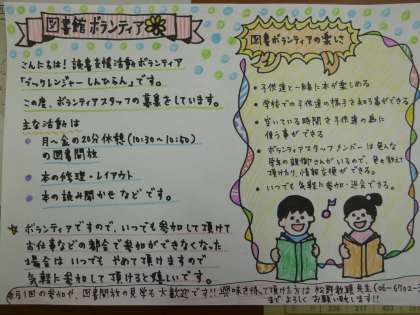 図書館ボランティア
こんにちは！読書支援活動ボランティア
「ブックレンジャーしんひろん」です。
この度、ボランティアスタッフの募集をしています。
主な活動は
・月〜金の20分休憩（10:30〜10:50）
の図書開放
・本の修理・レイアウト
・本の読み聞かせなどです。
☆ボランティアですので、いつでも参加して頂けて
お仕事などの都合で参加ができなくなった
場合はいつでもやめて頂けますので
気軽に参加して頂けると嬉しいです。
図書ボランティアの楽しさ
・子供達と一緒に本が楽しめる
・学校での子供達の様子を知る事ができる
・空いている時間を子供達の為に
使う事ができる
・ボランティアスタッフメンバーは色んな
学年の親御さんがいるので、色々教えて
頂けたり、情報交換ができる。
・いつでも気軽に参加・退会できる。
月1回の参加や、図書開放の見学も大歓迎です!!興味を持って頂けた方は 教頭先生(06-6702-
までよろしくお願い致します!!